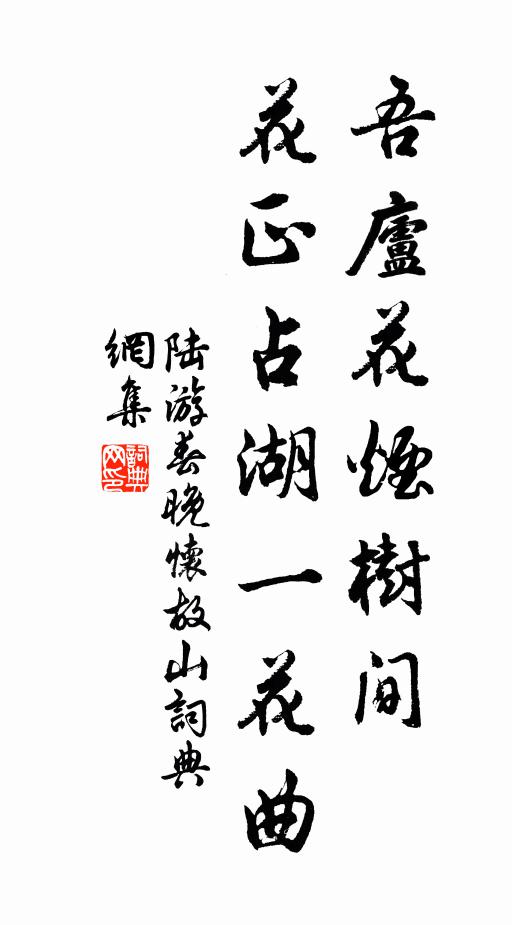 吾廬花煙樹間
花正占湖一花曲
陸游春晚懷故山詞典
網集
詞典網印